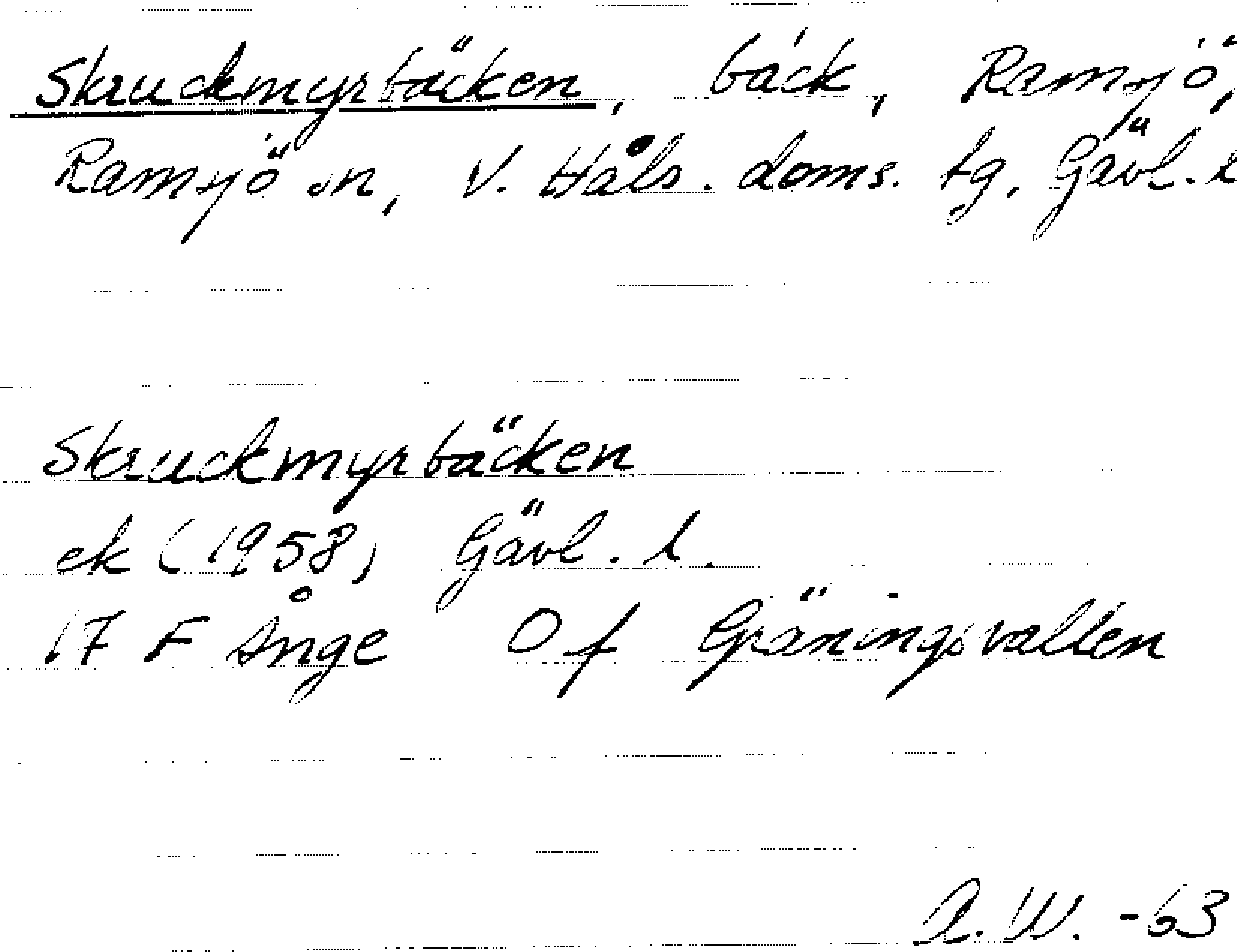 Skruckmyrbäcken, bäck, Ramsjö,
Ramsjö sn, V. Häls. doms. tg, Gävl. l
Skruckmyrbäcken
ek (1958) Gävl. l.
17 F Ånge O f Gräningsvallen
A. W. -63